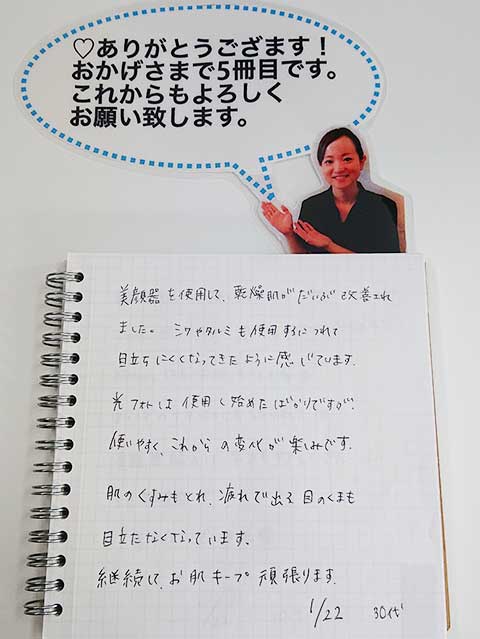 ♡ありがとうござます！
おかげさまで5冊目です。
これからもよろしく
お願い致します。
美顔器を使用して、乾燥肌がだいぶ改善され
ました。シワやタルミも使用するにつれて
目立ちにくくなってきたように感じています。
光フォトは使用し始めたばかりですが、
使いやすく、これからの変化が楽しみです。
肌のくすみもとれ、疲れで出る目のくまも
目立たなくなっています。
継続して、お肌キープ頑張ります。
1/22 30代